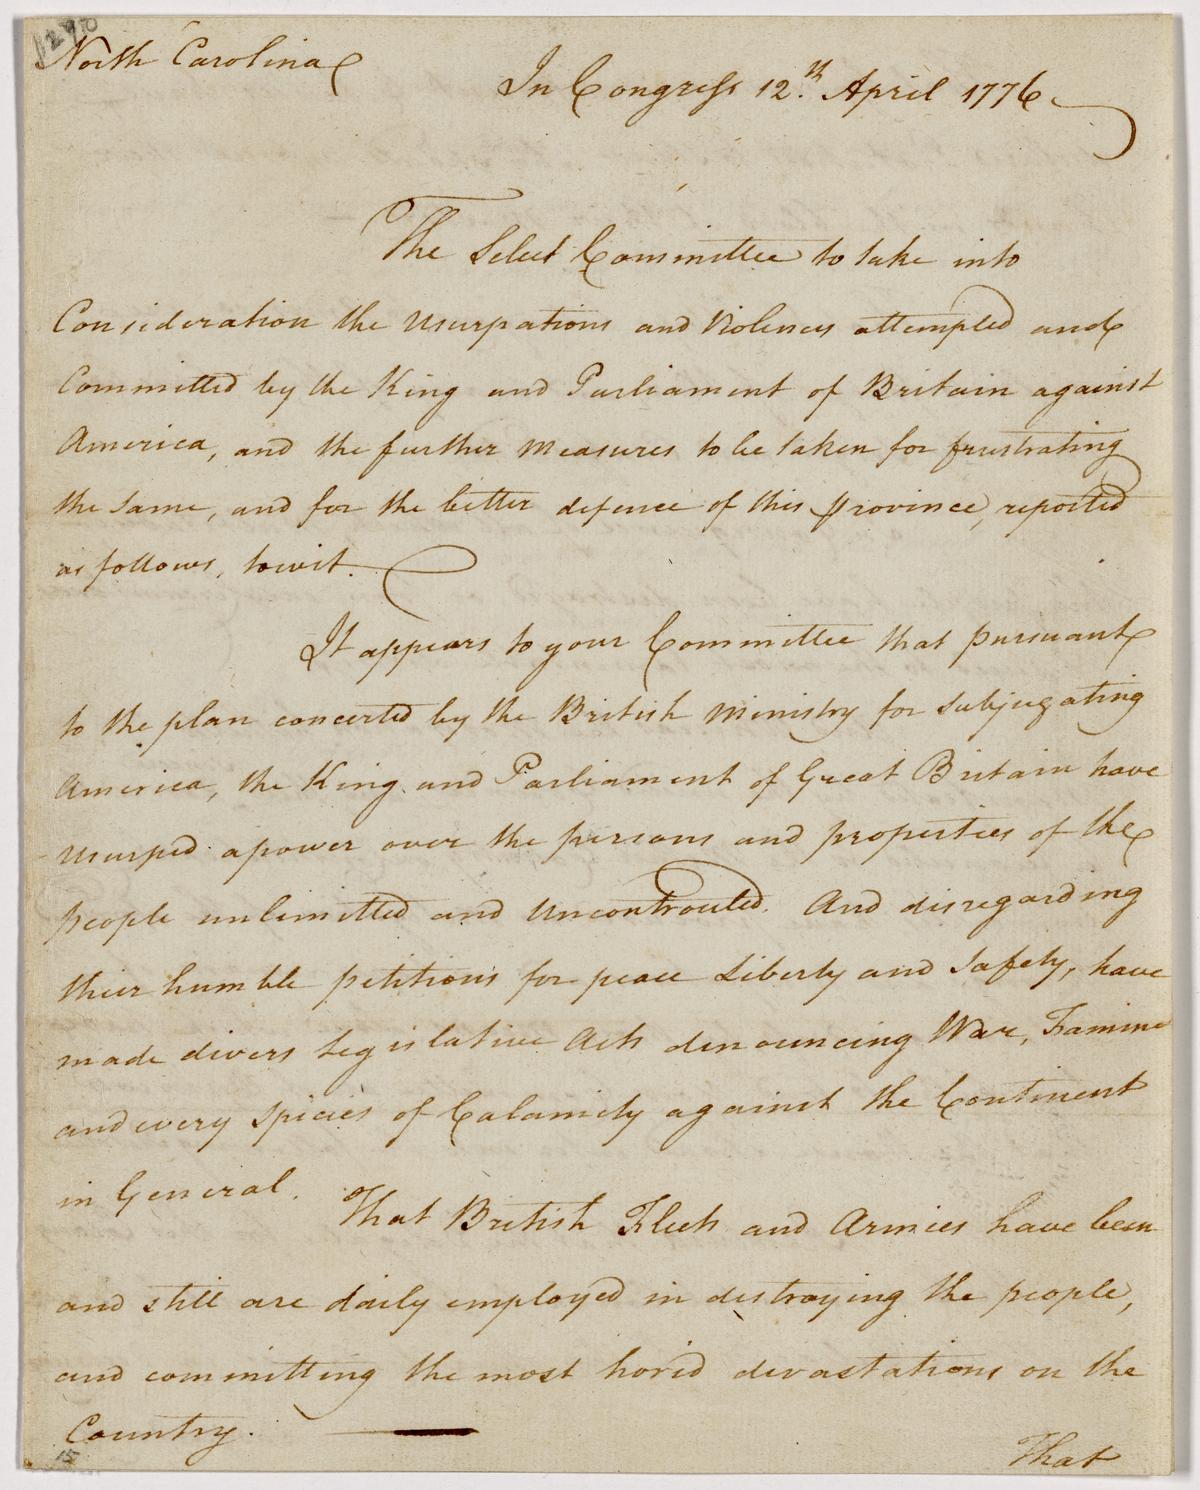 North Carolina
In Congress 12th. April 1776
The Select Committee to take into
Consideration the usurpations and Violences attempted and
Committed by the King and Parliament of Britain against
America, and the further Measures to be taken for frustrating
the same, and for the better defence of this province, reported
as follows, towit.
It appears to your Committee that pursuant
to the plan concerted by the British Ministry for subjugating
America, the King and Parliament of Great Britain have
usurped a power over the persons and properties of the
people unlimitted and uncontrouled. And disregarding
their humble petitions for peace Liberty and safety, have
made divers Legislative Acts denouncing War, Famine
and every Species of Calamity against the Continent
in General. That British Fleets and Armies have been
and still are daily employed in destroying the people,
and committing the most horid devastations on the
Country.
That
15